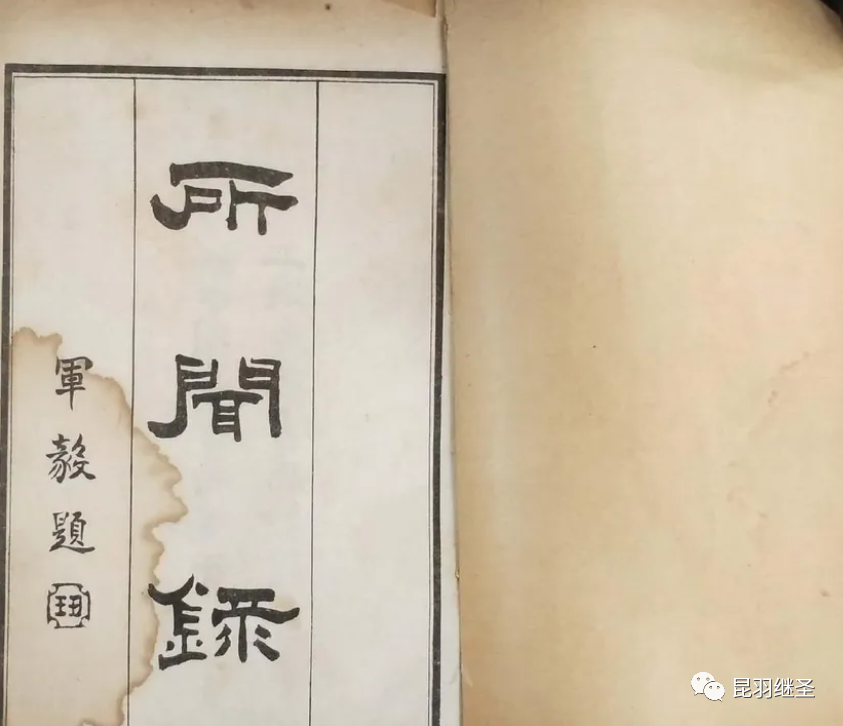 所聞錄
軍毅題
昆羽继圣